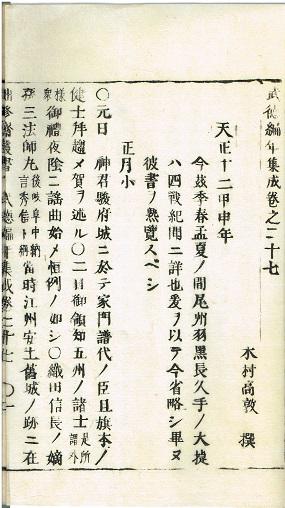 武徳編年集成巻之二十七
木村高敦 撰
天正十二甲申年
今玆季春孟夏ノ間尾州羽黒長久手ノ大捷
ハ四戦紀聞ニ詳也爰ヲ以テ今省略シ畢ヌ
彼書ヲ熟覧スベシ
正月小
〇元日 神君駿府城ニ於テ家門譜代ノ臣且旗本ノ
健士拜趨メ賀ヲ述ル〇二日御領知五州ノ諸士是所謂外
様衆御禮夜陰ニ謡曲始メ恒例ノ如シ〇織田信長ノ嫡
孫三法師丸後岐阜中納言秀信ト稱當時江州安土舊城ノ跡ニ在